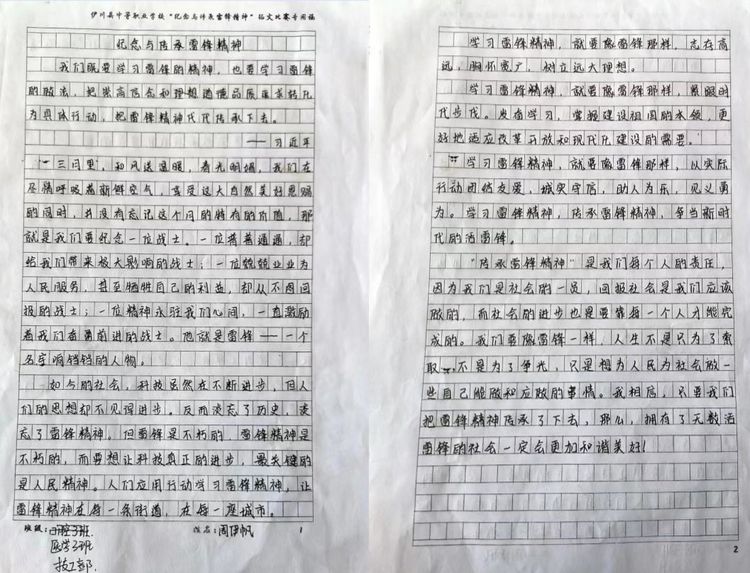 伊川县中等职业学校“纪念与传承雷锋精神”征文比赛专用稿
纪念与传承雷锋精神
我们既要学习雷锋的精神,也要学习雷锋
的做法,把崇高信念和理想道德品质追求转化
为具体行动,把雷锋精神代代传承下去。
——习近平
三月里,和风送温暖,春光明媚,我们在
尽情呼吸着新鲜空气,享受这大自然美好恩赐
的同时,并没有忘记这个月的特有的价值,那
就是我们要纪念一位战士。一位普普通通,却
给我们带来极大影响的战士;一位兢兢业业为
人民服务,甚至牺牲自己的利益,却从不图回
报的战士;一位精神永驻我们心间,一直激励
着我们奋勇前进的战士。他就是雷锋——一个
名字响铛铛的人物。
如今的社会,科技虽然在不断进步,但人
们的思想却不见得进步。反而淡忘了历史,淡
忘了雷锋精神。但雷锋是不朽的,雷锋精神是
不朽的,而要想让科技真正的进步,最关键的
是人民精神。人们应用行动学习雷锋精神,让
雷锋精神在每一条街道,在每一座城市。
班级:
医学3班
技工部.
姓名:周伊帆
1
学习雷锋精神,就要像雷锋那样,志在高
远,胸怀宽广,树立远大理想。
学习雷锋精神,就要像雷锋那样,紧跟时
代步伐。发奋学习,掌握建设祖国的本领,更
好地适应改革开放和现代化建设的需要。
学习雷锋精神,就要像雷锋那样,以实际
行动团结友爱,诚实守信,助人为乐,见义勇
为。学习雷锋精神,传承雷锋精神,争当新时
代的活雷锋。
“传承雷锋精神”是我们每个人的责任,
因为我们是社会的一员,回报社会是我们应该
做的,而社会的进步也是要靠每一个人才能完
成的。我们要像雷锋一样,人生不是只为了索
取,不是为了争光,只是想为人民为社会做一
些自己能做和应做的事情。我相信,只要我们
把雷锋精神传承了下去,那么,拥有了无数活
雷锋的社会一定会更加和谐美好!
2